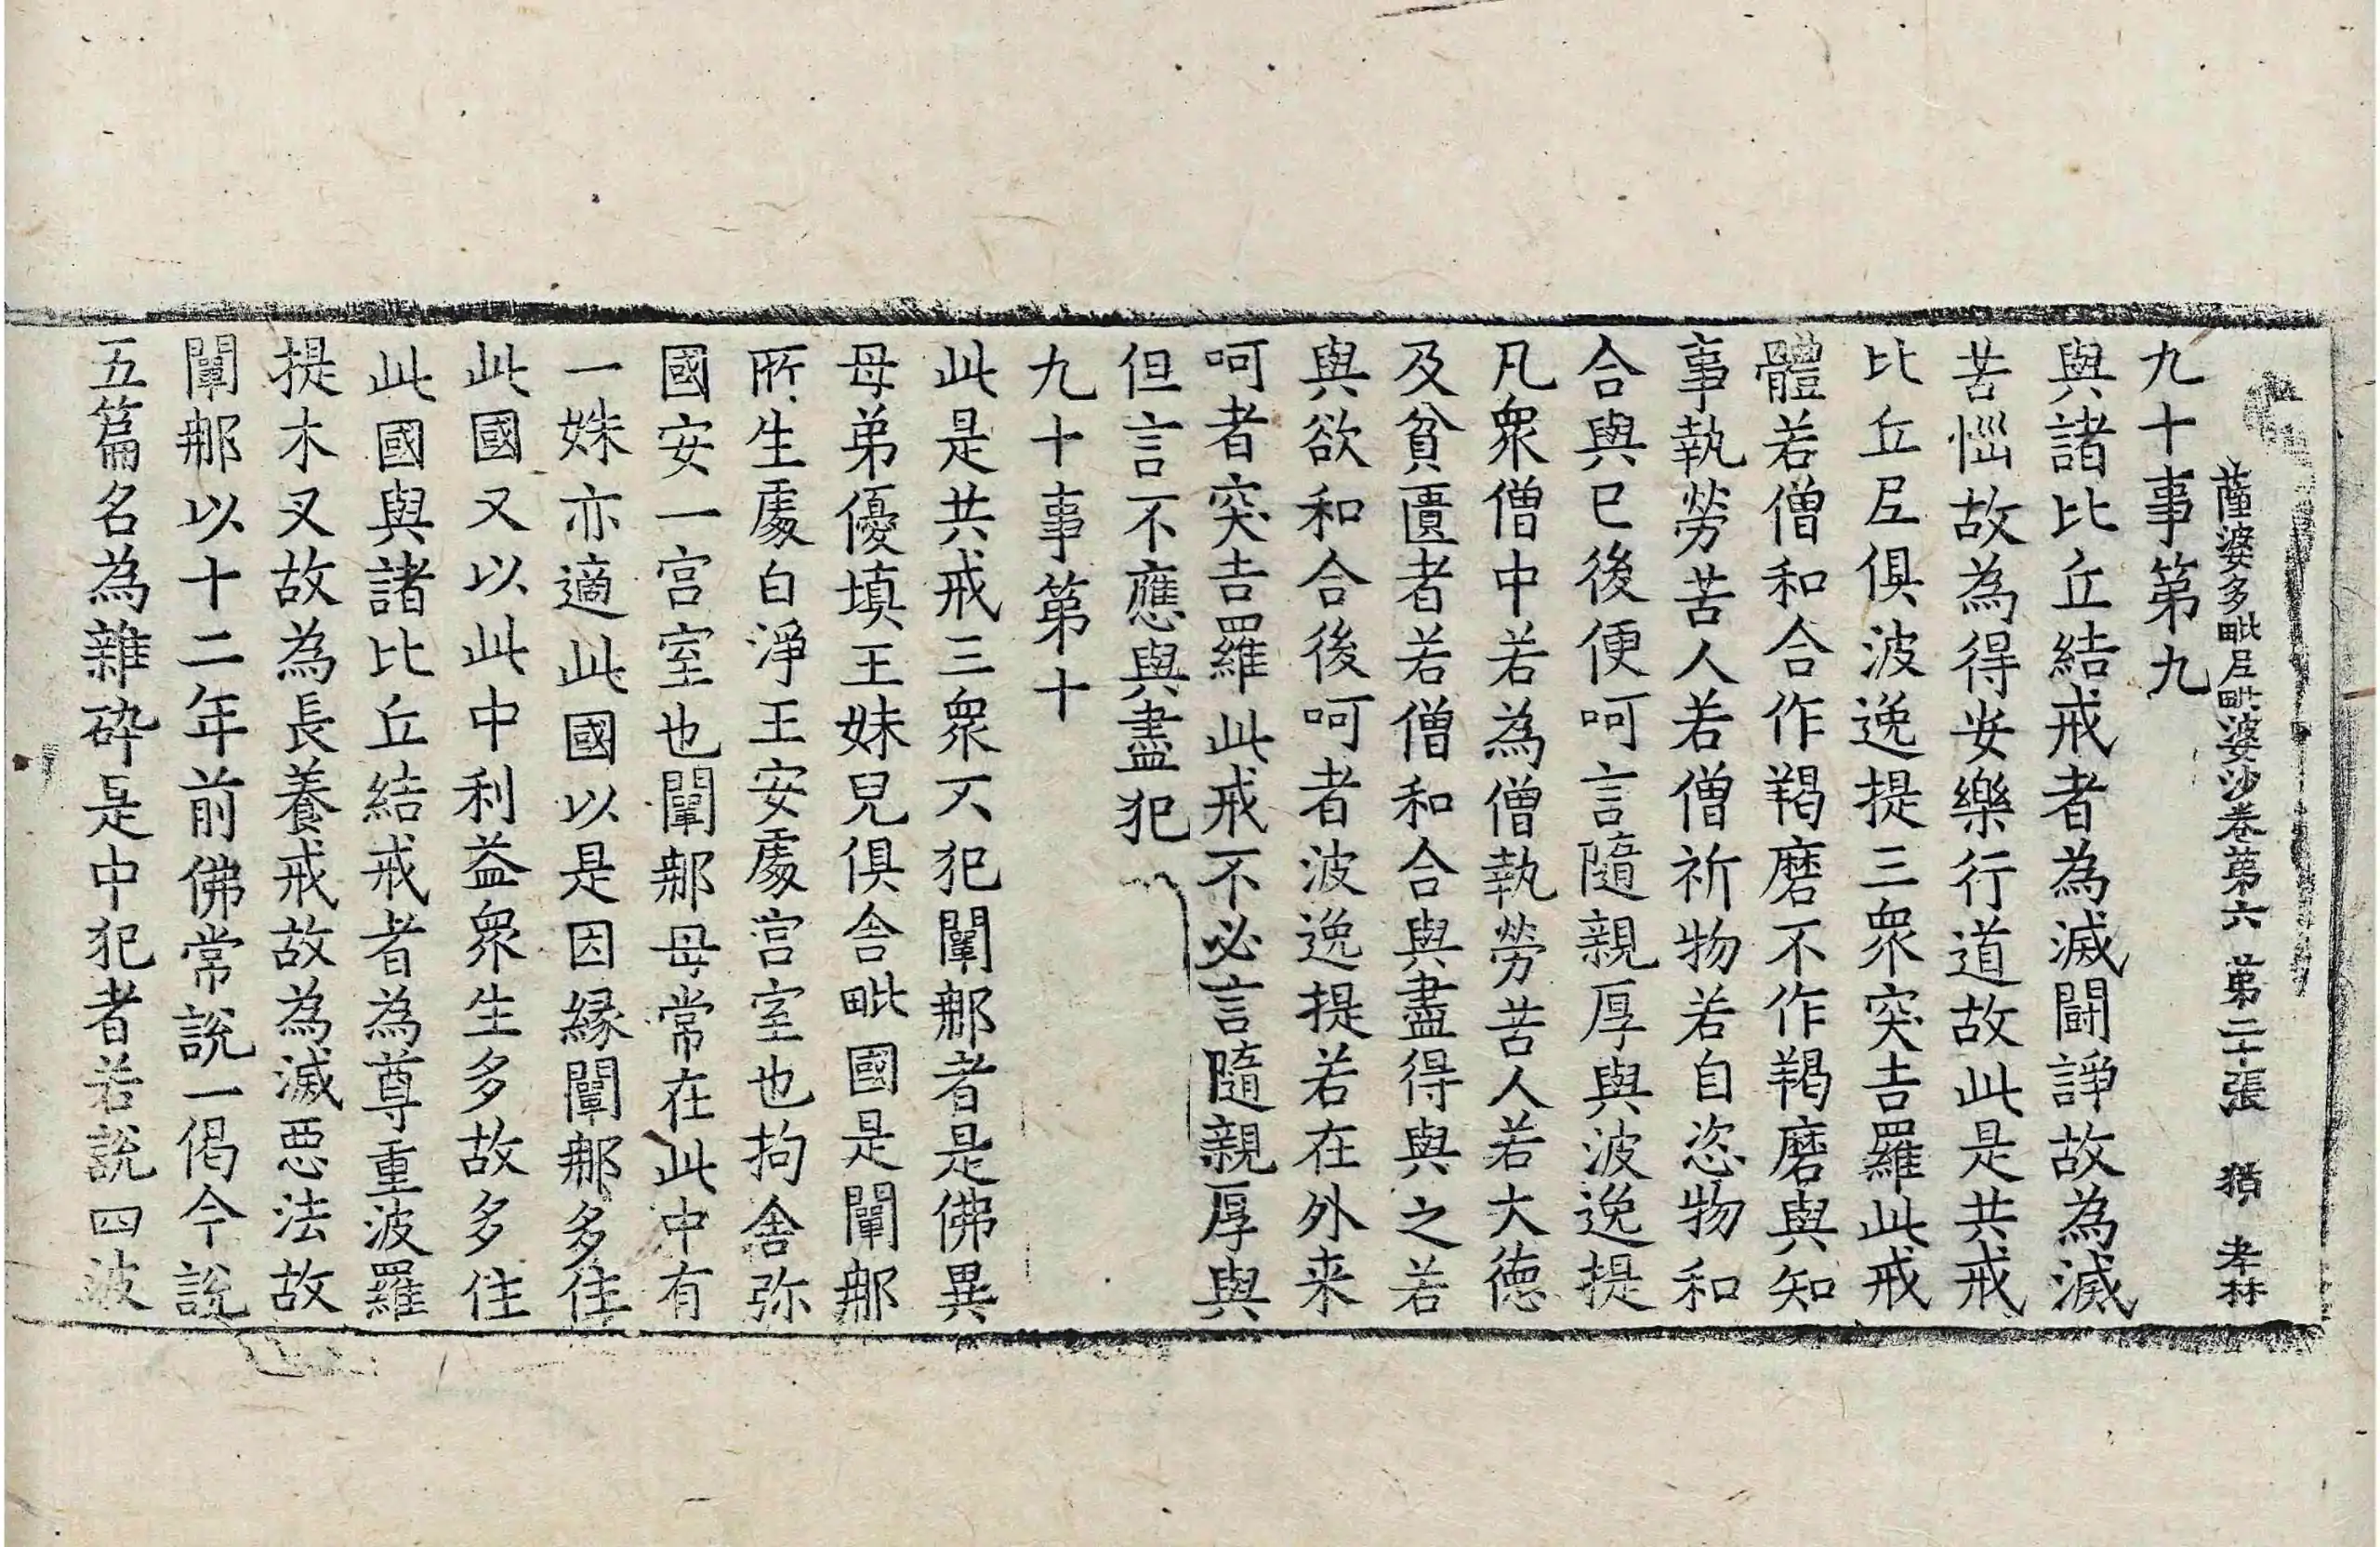 薩婆多毗尼毗婆沙卷第六 第二十張 猶 孝林
九十事第九
與諸比丘結戒者為滅鬪諍故為滅
苦惱故為得安樂行道故此是共戒
比丘尼俱波逸提三衆突吉羅此戒
體若僧和合作羯磨不作羯磨與知
事執勞苦人若僧祈物若自恣物和
合與已後便呵言隨親厚與波逸提
凡衆僧中若為僧執勞苦人若大德
及貧匱者若僧和合與盡得與之若
與欲和合後呵者波逸提若在外来
呵者突吉羅此戒不必言隨親厚與
但言不應與盡犯
九十事第十
此是共戒三衆不犯闡那者是佛異
母弟優填王妹兒俱舍毗國是闡那
所生處白淨王安處宮室也拘舍弥
國安一宫室也闡那母常在此中有
一姝亦適此國以是因緣闡那多住
此國又以此中利益衆生多故多住
此國與諸比丘結戒者為尊重波羅
提木叉故為長養戒故為滅惡法故
闡那以十二年前佛常說一偈今說
五篇名為雜碎是中犯者若說四波